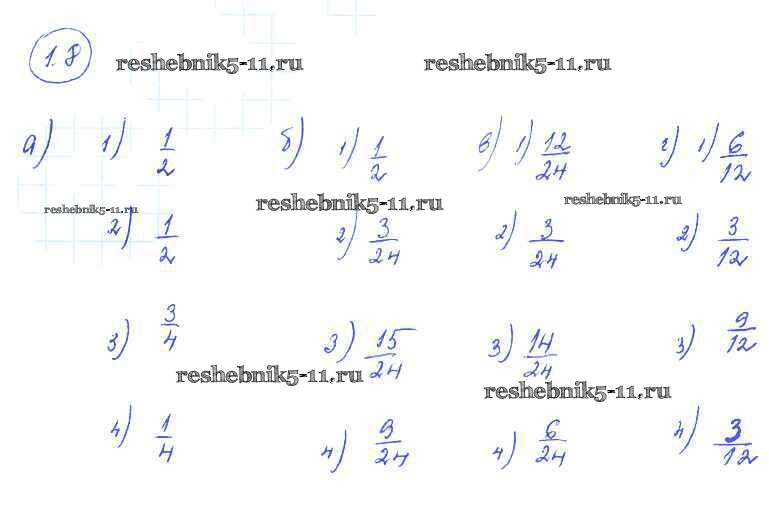 1.8 reshebnik5-11.ru reshebnik5-11.ru
а) 1) 1/2 б) 1) 1/2 в) 1) 12/24 г) 1) 6/12
reshebnik5-11.ru reshebnik5-11.ru reshebnik5-11.ru
2) 1/2 2) 3/24 2) 3/24 2) 3/12
3) 3/4 3) 15/24 3) 14/24 3) 9/12
reshebnik5-11.ru reshebnik5-11.ru
4) 1/4 4) 9/24 4) 6/24 4) 3/12